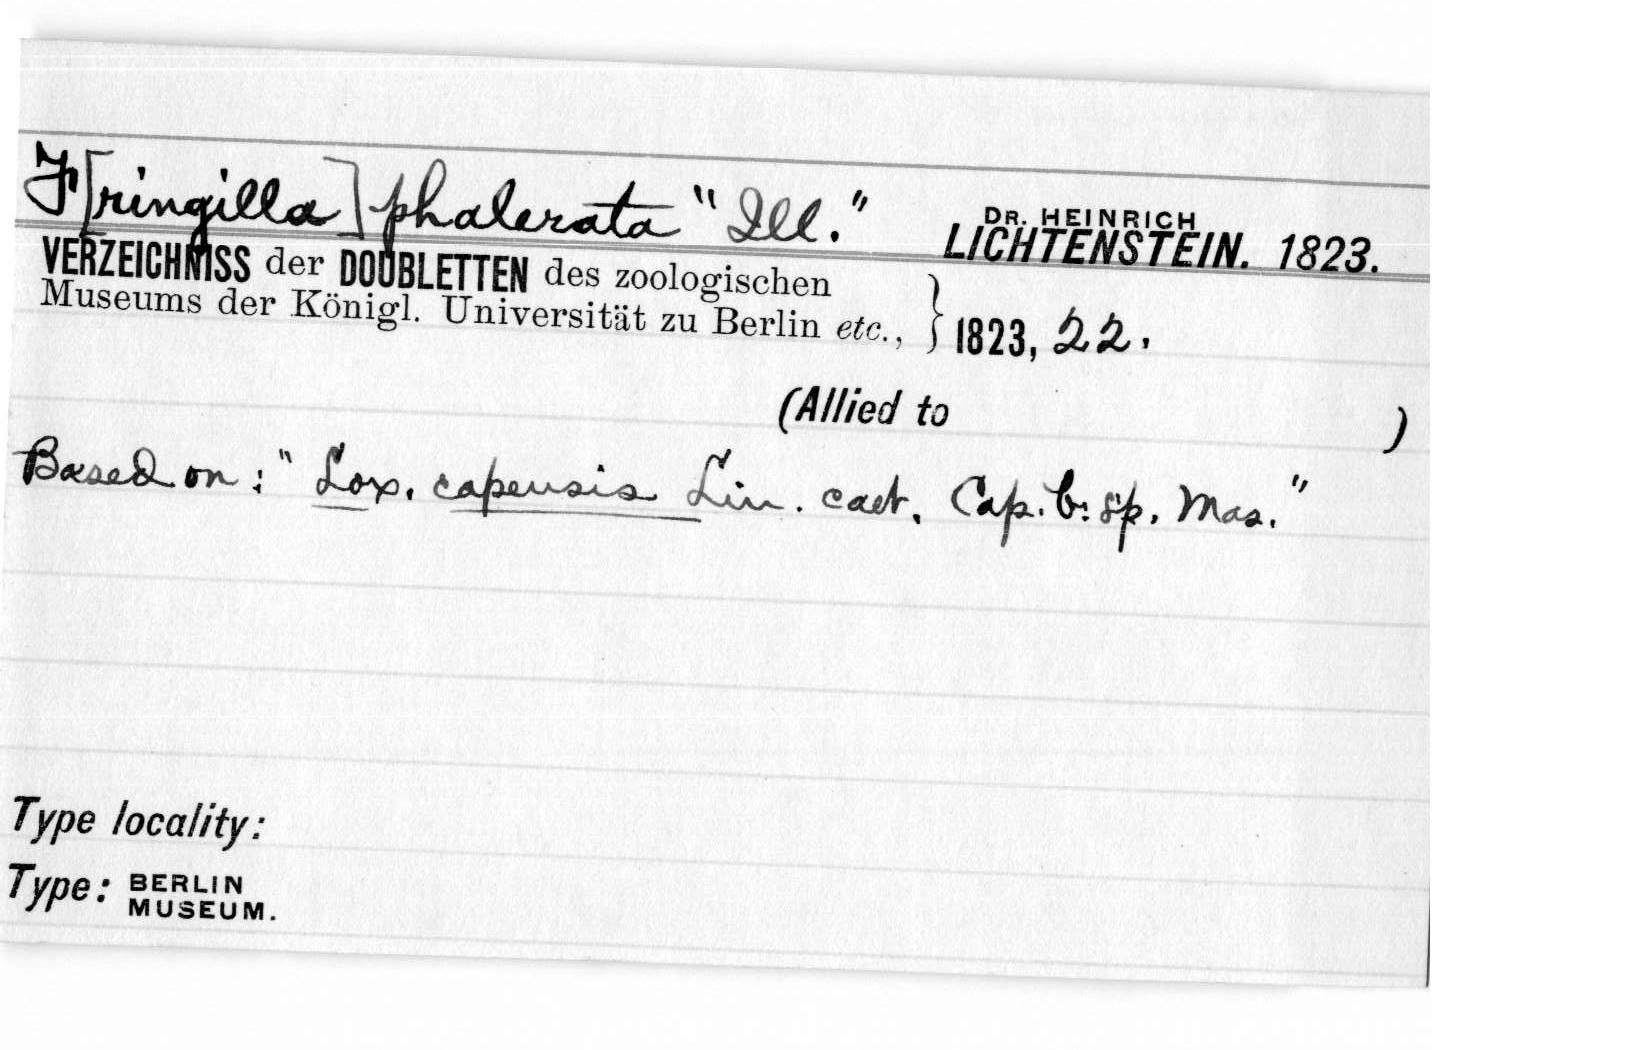 F[ringilla] phalerata "Ill." DR. HEINRICH LICHTENSTEIN. 1823.
VERZEICHNISS der DOUBLETTEN des zoologischen
Museums der Königl. Universität zu Berlin etc., } 1823, 22.
(Allied to )
Based on: "Lox. capensis Lin. caet. Cap. b. sp. Mas."
Type locality:
Type: BERLIN
MUSEUM.